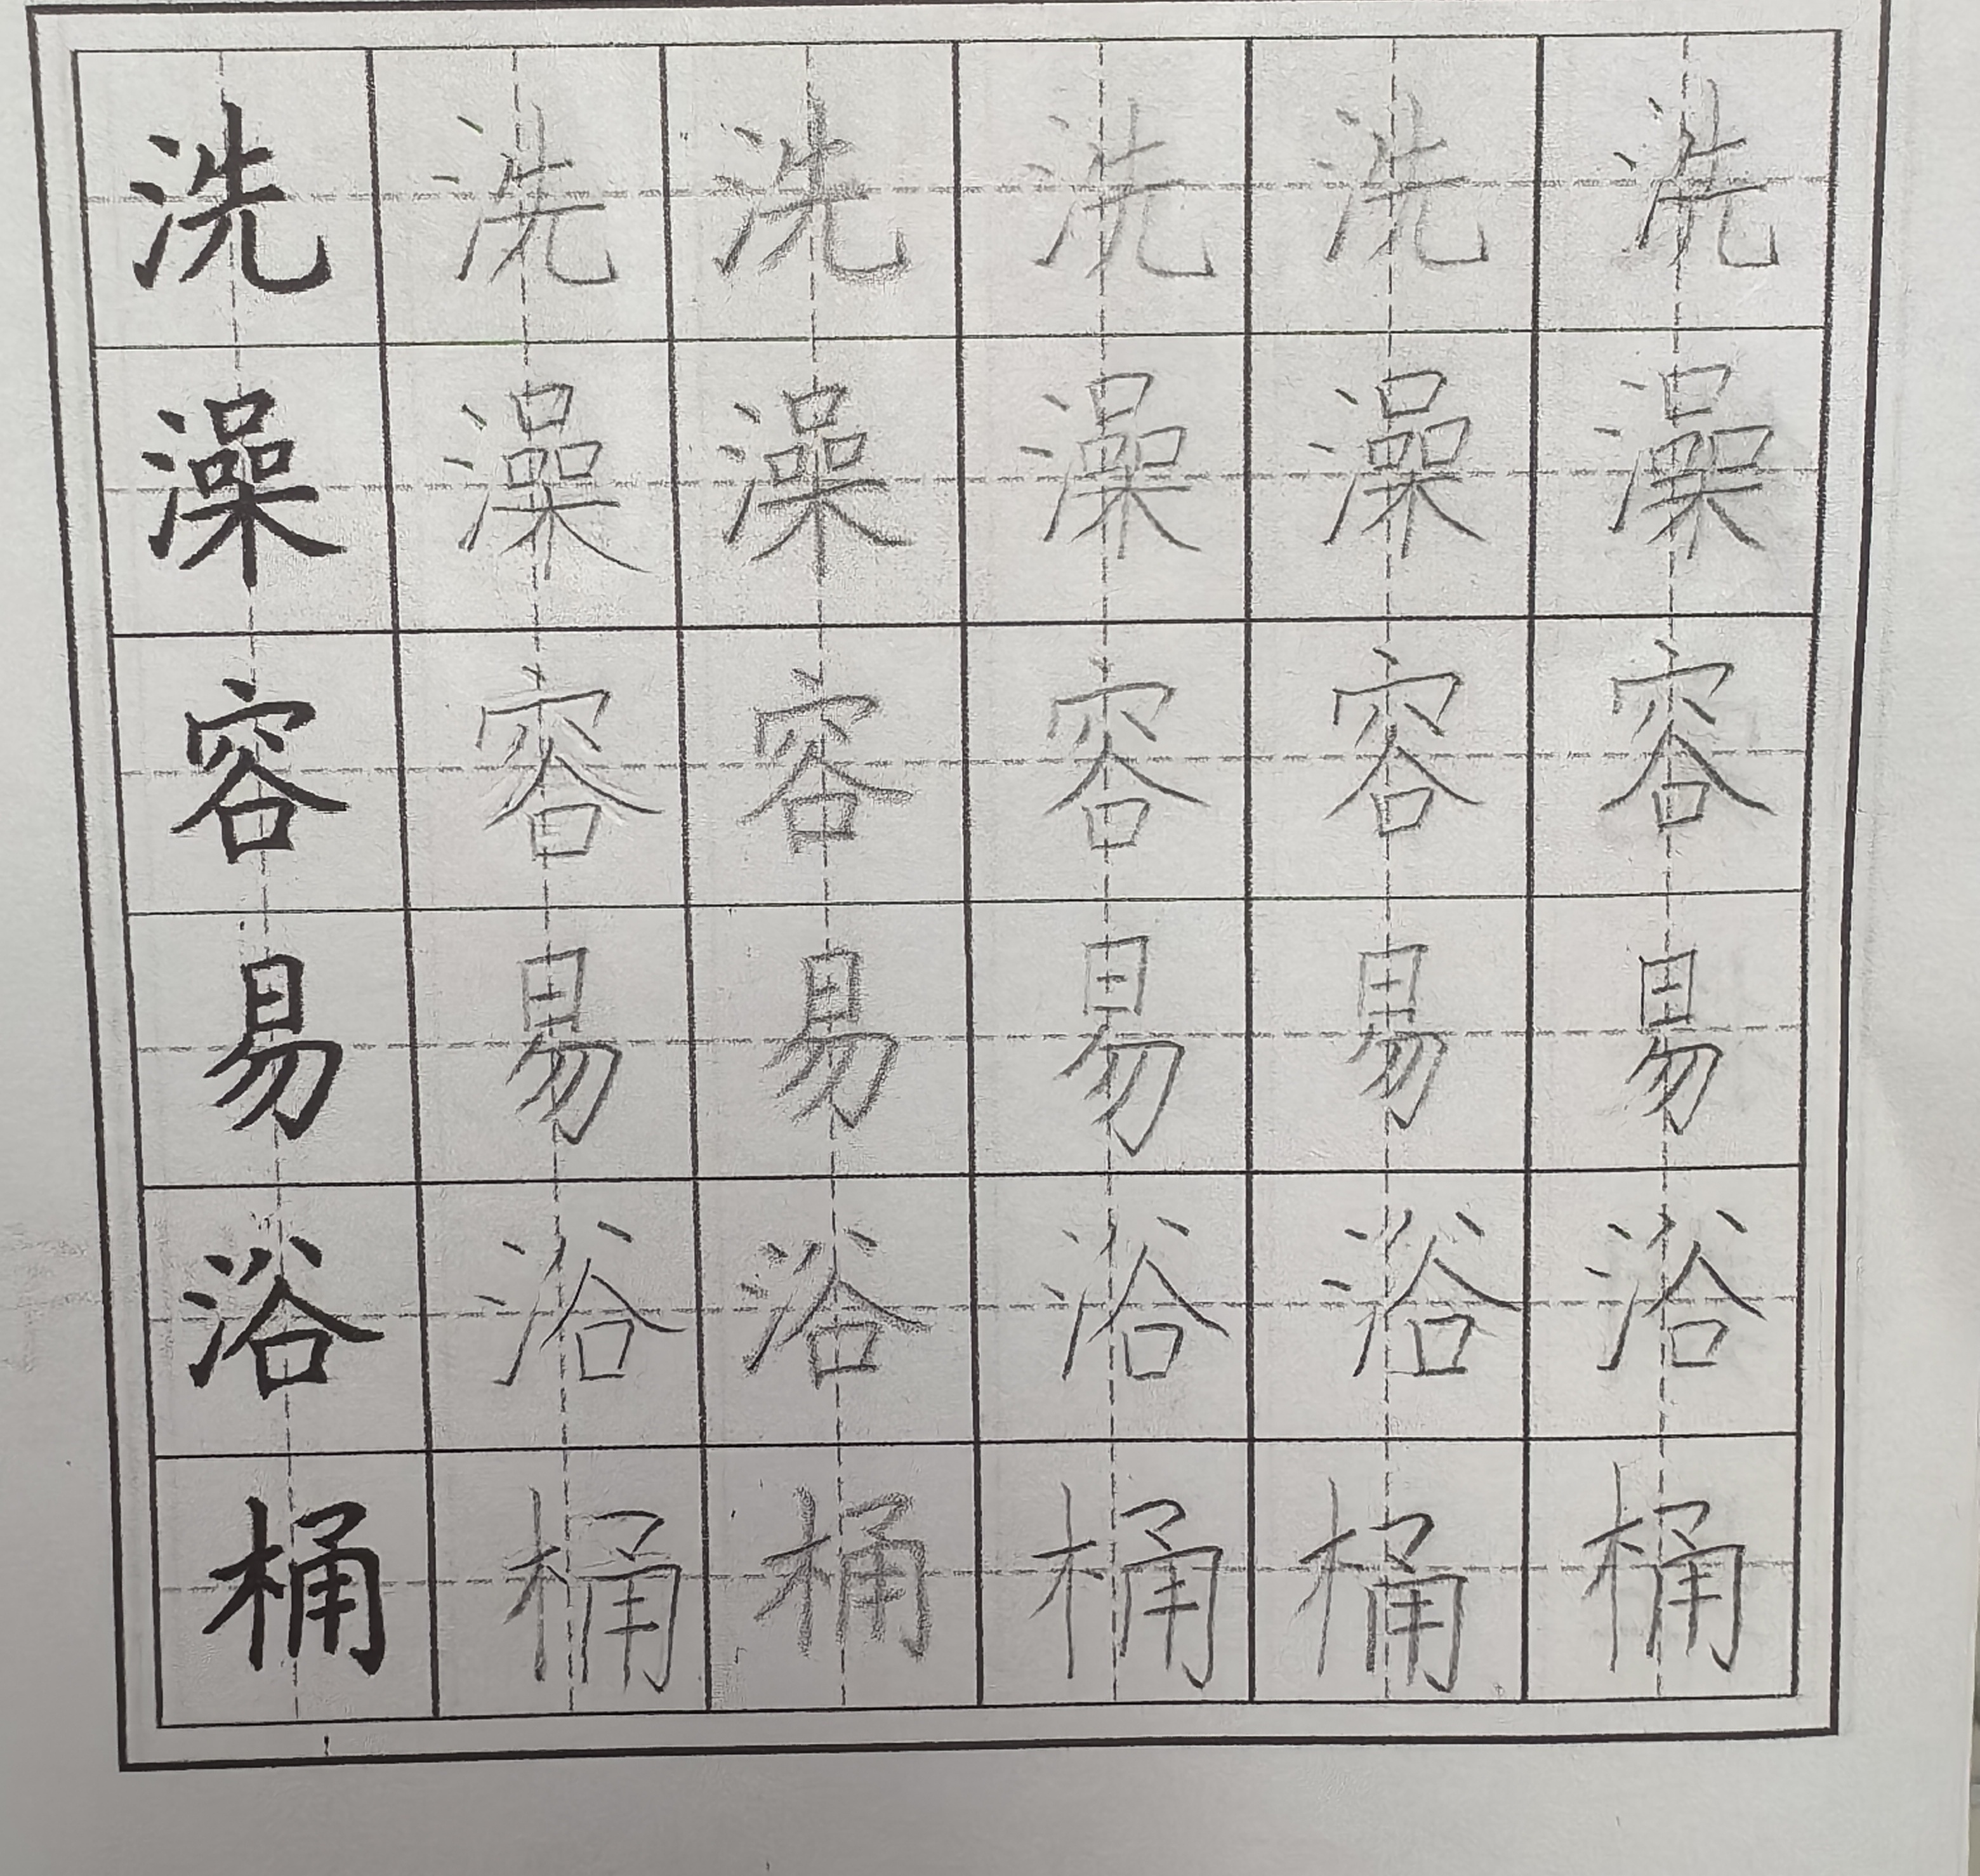 洗洗洗洗洗洗
澡澡澡澡澡澡
容容容容容容
易易易易易易
浴浴浴浴浴浴
桶桶桶桶桶桶